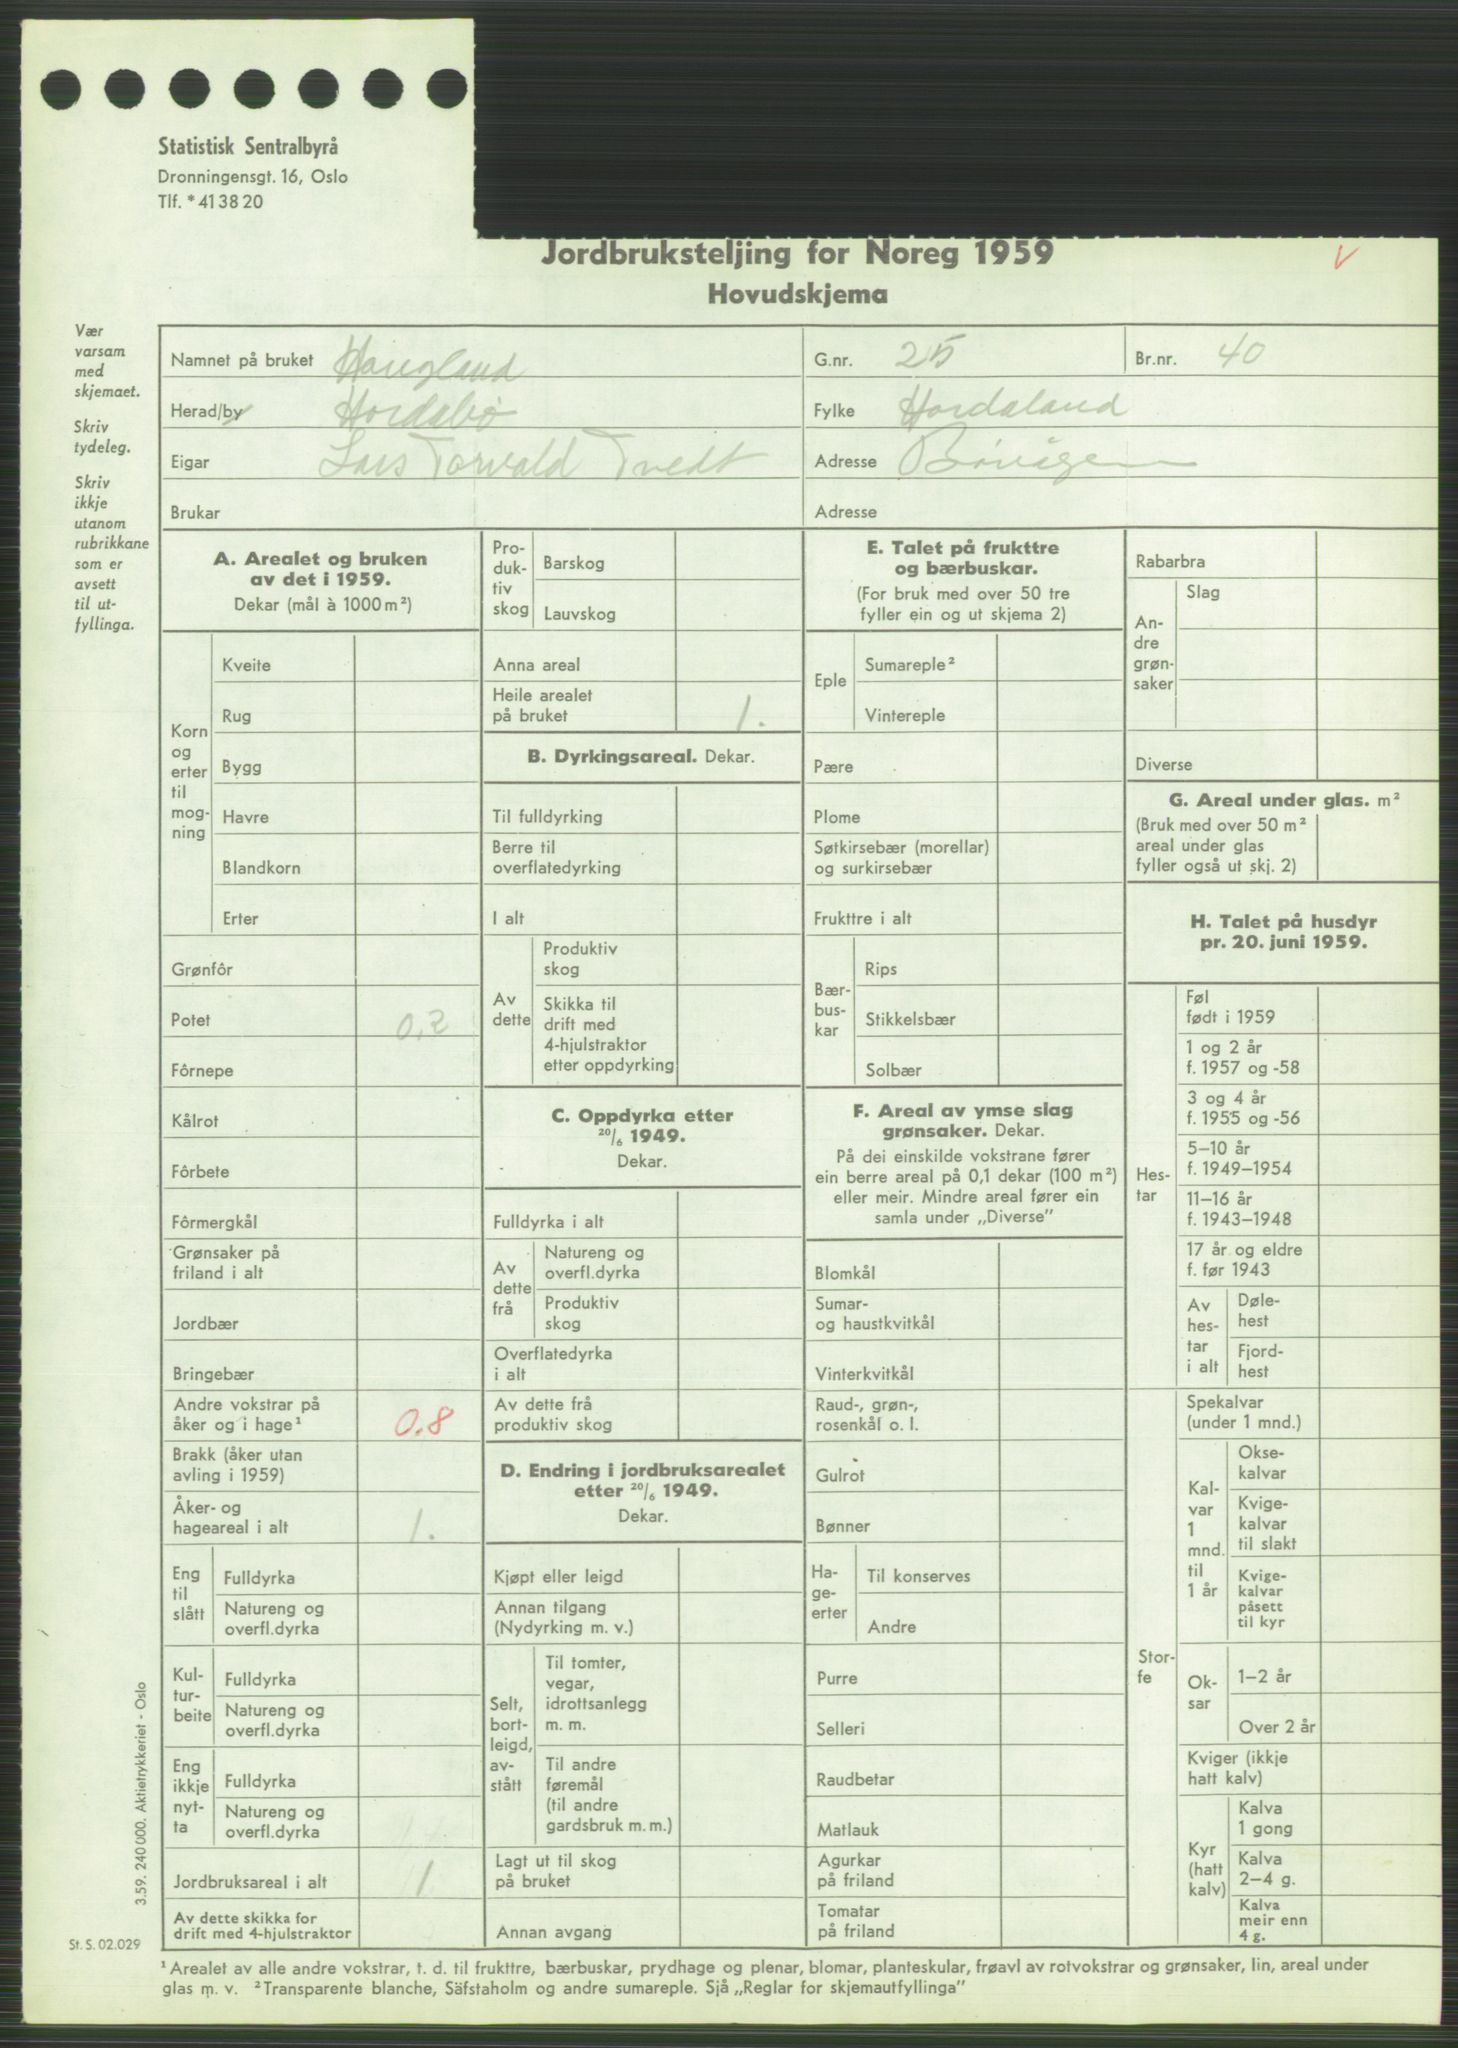 Statistisk Sentralbyrå
Dronningensgt. 16, Oslo
Tlf. * 41 38 20
Jordbruksteljing for Noreg 1959
V
Hovudskjema
Vær
varsam
med
skjemaet.
Skriv
tydeleg.
Skriv
ikkje
utanom
rubrikkane
som er
avsett
til ut-
fyllinga.
Namnet på bruket Haugland G.nr. 25 Br.nr. 40
Herad/by Hordabø Fylke Hordaland
Eigar Lars Torvald Tvedt Adresse Bøvågen
Brukar Adresse
A. Arealet og bruken
av det i 1959.
Dekar (mål à 1000 m²)
Korn
og
erter
til
mog-
ning
Kveite
Rug
Bygg
Havre
Blandkorn
Erter
Grønfôr
Potet 0,2
Fôrnepe
Kålrot
Fôrbete
Fôrmergkål
Grønsaker på
friland i alt
Jordbær
Bringebær
Andre vokstrar på
åker og i hage¹ 0.8
Brakk (åker utan
avling i 1959)
Åker- og
hageareal i alt 1.
Eng
til
slått
Fulldyrka
Natureng og
overfl.dyrka
Kul-
tur-
beite
Fulldyrka
Natureng og
overfl.dyrka
Eng
ikkje
nyt-
ta
Fulldyrka
Natureng og
overfl.dyrka
Jordbruksareal i alt 1
Av dette skikka for
drift med 4-hjulstraktor
Pro-
duk-
tiv
skog
Barskog
Lauvskog
Anna areal
Heile arealet
på bruket 1.
B. Dyrkingsareal. Dekar.
Til fulldyrking
Berre til
overflatedyrking
I alt
Av
dette
Produktiv
skog
Skikka til
drift med
4-hjulstraktor
etter oppdyrking
C. Oppdyrka etter
20/6 1949.
Dekar.
Fulldyrka i alt
Av
dette
frå
Natureng og
overfl.dyrka
Produktiv
skog
Overflatedyrka
i alt
Av dette frå
produktiv skog
D. Endring i jordbruksarealet
etter 20/6 1949.
Dekar.
Kjøpt eller leigd
Annan tilgang
(Nydyrking m. v.)
Selt,
bort-
leigd,
av-
stått
Til tomter,
vegar,
idrottsanlegg
m. m.
Til andre
føremål
(til andre
gardsbruk m. m.)
Lagt ut til skog
på bruket
Annan avgang
E. Talet på frukttre
og bærbuskar.
(For bruk med over 50 tre
fyller ein og ut skjema 2)
Eple
Sumareple²
Vintereple
Pære
Plome
Søtkirsebær (morellar)
og surkirsebær
Frukttre i alt
Bær-
bus-
kar
Rips
Stikkelsbær
Solbær
F. Areal av ymse slag
grønsaker. Dekar.
På dei einskilde vokstrane fører
ein berre areal på 0,1 dekar (100 m²)
eller meir. Mindre areal fører ein
samla under „Diverse”
Blomkål
Sumar-
og haustkvitkål
Vinterkvitkål
Raud-, grøn-,
rosenkål o. l.
Gulrot
Bønner
Ha-
ge-
erter
Til konserves
Andre
Purre
Selleri
Raudbetar
Matlauk
Agurkar
på friland
Tomatar
på friland
Rabarbra
An-
dre
grøn-
saker
Slag
Diverse
G. Areal under glas. m²
(Bruk med over 50 m²
areal under glas
fyller også ut skj. 2)
H. Talet på husdyr
pr. 20. juni 1959.
Hes-
tar
Føl
født i 1959
1 og 2 år
f. 1957 og -58
3 og 4 år
f. 1955 og -56
5–10 år
f. 1949–1954
11–16 år
f. 1943–1948
17 år og eldre
f. før 1943
Av
hes-
tar
i alt
Døle-
hest
Fjord-
hest
Stor-
fe
Spekalvar
(under 1 mnd.)
Kal-
var
1
mnd.
til
1 år
Okse-
kalvar
Kvige-
kalvar
til slakt
Kvige-
kalvar
påsett
til kyr
Ok-
sar
1–2 år
Over 2 år
Kviger (ikkje
hatt kalv)
Kyr
(hatt
kalv)
Kalva
1 gong
Kalva
2–4 g.
Kalva
meir enn
4 g.
3.59. 240 000. Aktietrykkeriet - Oslo
St. S. 02.029
¹ Arealet av alle andre vokstrar, t. d. til frukttre, bærbuskar, prydhage og plenar, blomar, planteskular, frøavl av rotvokstrar og grønsaker, lin, areal under
glas m. v. ² Transparente blanche, Säfstaholm og andre sumareple. Sjå „Reglar for skjemautfyllinga”